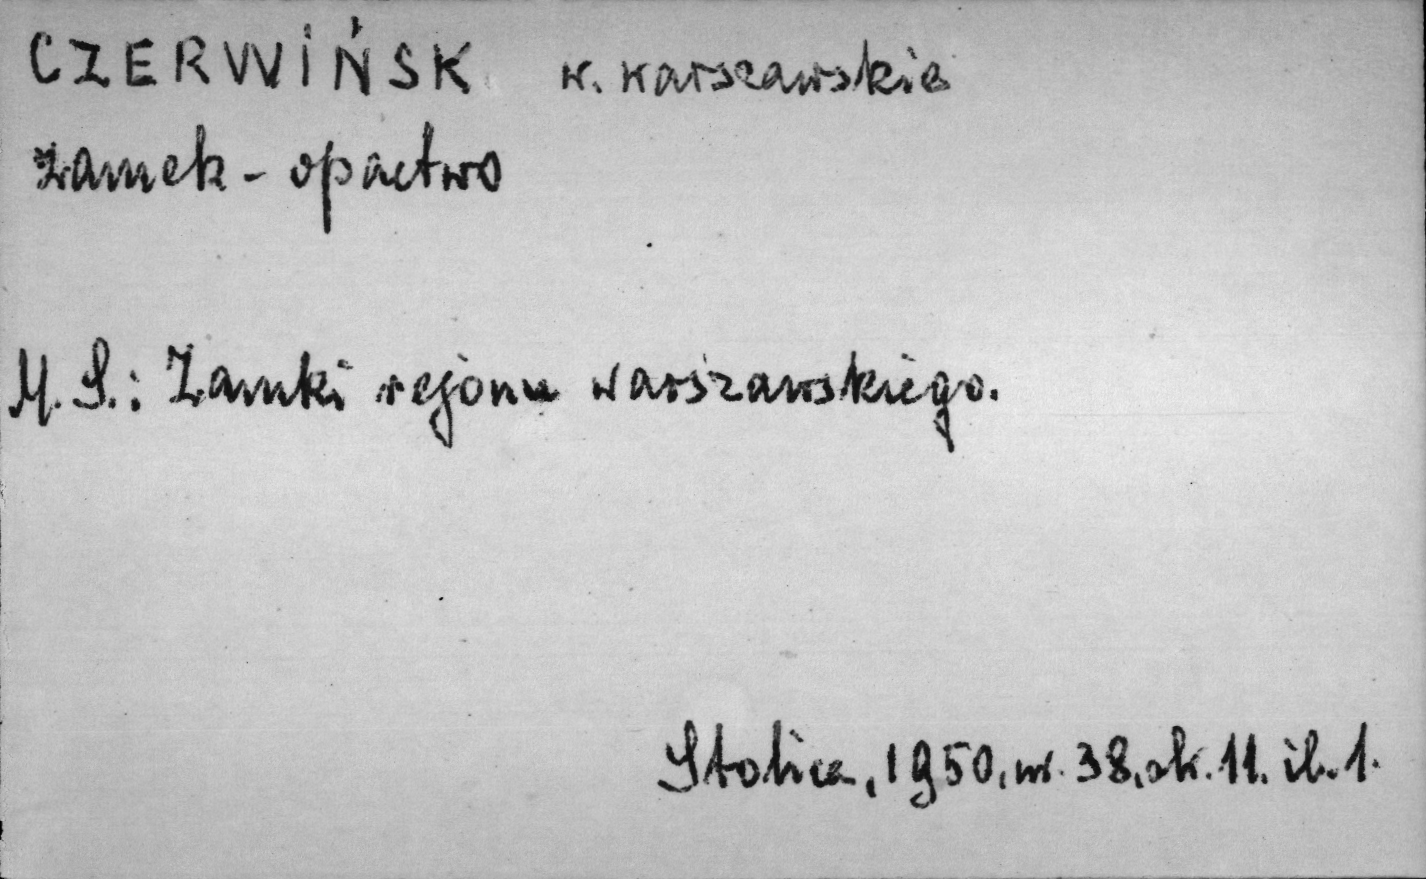 CZERWIŃSK w. warszawskie
zamek - opactwo
M. S.: Zamki rejonu warszawskiego.
Stolica, 1950, nr. 38, str. 11. il. 1.